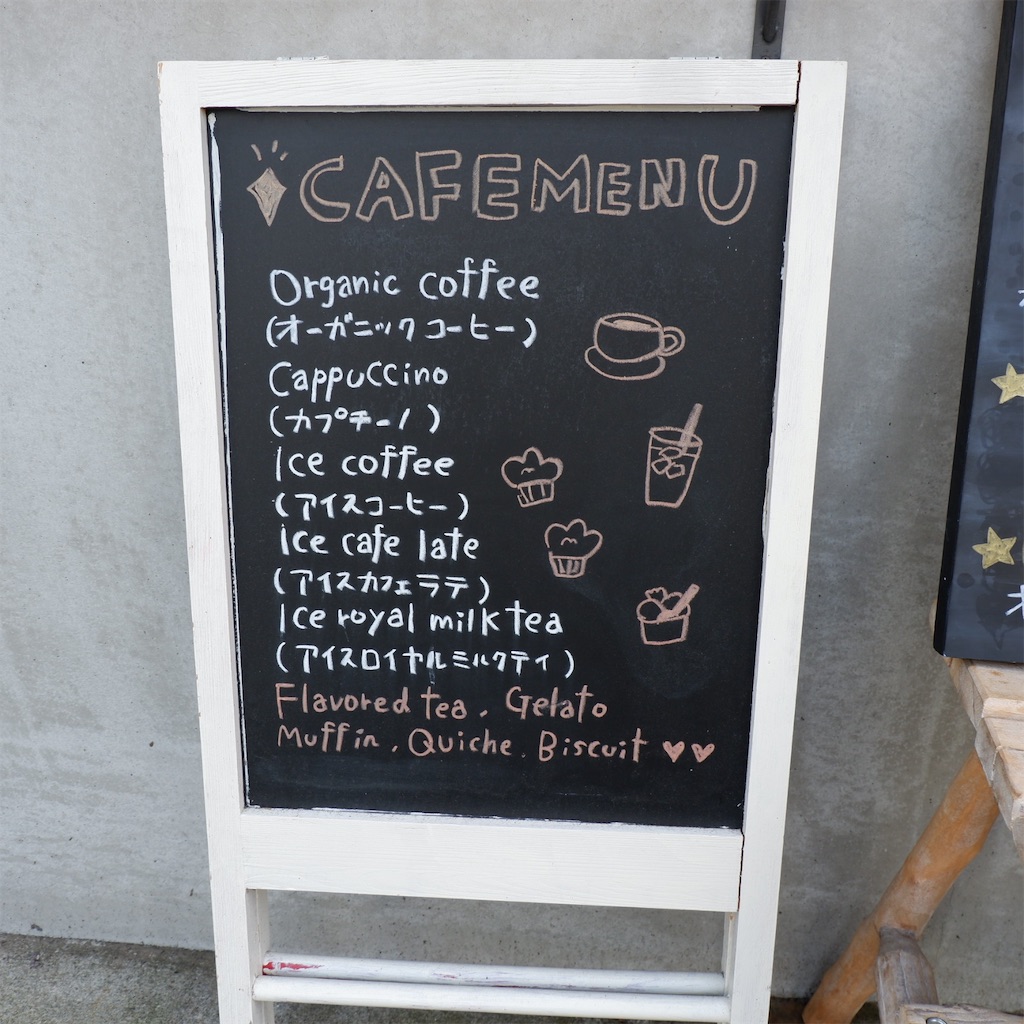 CAFE MENU
Organic coffee
(オーガニックコーヒー)
Cappuccino
(カプチーノ)
Ice coffee
(アイスコーヒー)
Ice cafe late
(アイスカフェラテ)
Ice royal milk tea
(アイスロイヤルミルクティ)
Flavored tea. Gelato
Muffin. Quiche. Biscuit ♥♥